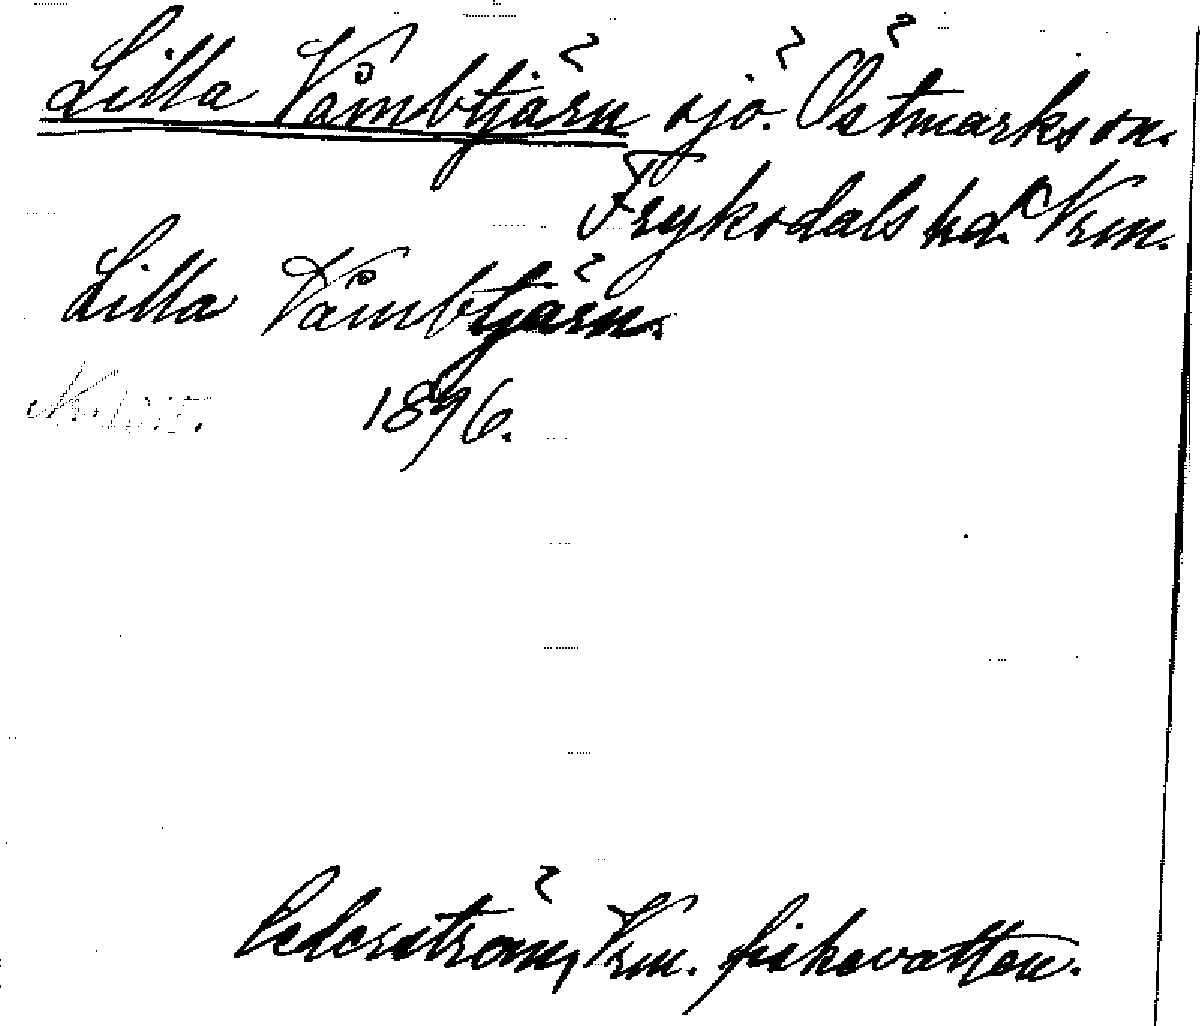 Lilla Våmbtjärn sjö. Östmarks sn.
Fryksdals hd. Vrm.
Lilla Våmbtjärn.
1896.
Cederström, Vrm. fiskevatten.